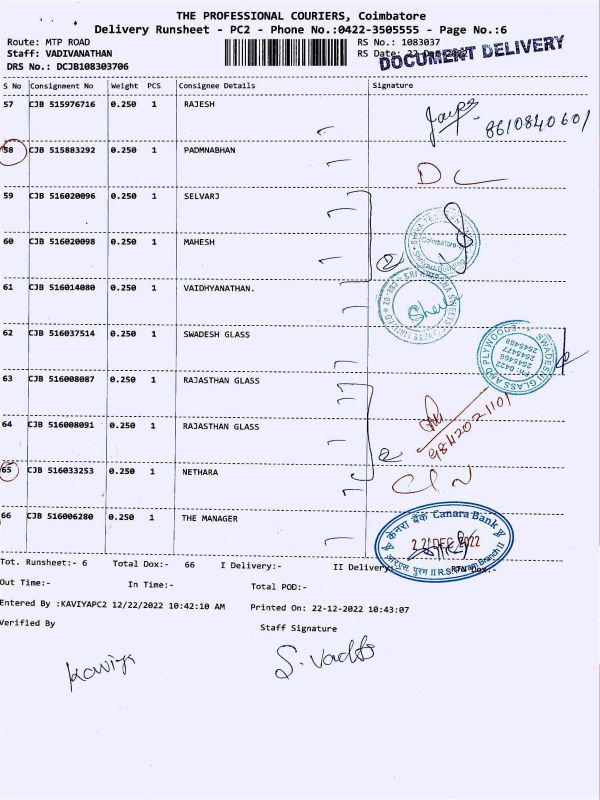 THE PROFESSIONAL COURIERS, Coimbatore
Delivery Runsheet - PC2 - Phone No.:0422-3505555 - Page No.:6
Route: MTP ROAD
RS No.: 1083037
Staff: VADIVANATHAN
RS Date: 22-Dec-2022
DOCUMENT DELIVERY
DRS No.: DCJB108303706
S No Consignment No Weight PCS Consignee Details Signature
57 CJB 515976716 0.250 1 RAJESH
8610840601
58 CJB 515883292 0.250 1 PADMNABHAN
DC
59 CJB 516020096 0.250 1 SELVARJ
60 CJB 516020098 0.250 1 MAHESH
Coimbatore
61 CJB 516014080 0.250 1 VAIDHYANATHAN.
62 CJB 516037514 0.250 1 SWADESH GLASS
SWADESH GLASS AND PLYWOODS
PH: 0422
2545466
2545477
2545488
63 CJB 516008087 0.250 1 RAJASTHAN GLASS
64 CJB 516008091 0.250 1 RAJASTHAN GLASS
9842021101
65 CJB 516033253 0.250 1 NETHARA
CIN
66 CJB 516006280 0.250 1 THE MANAGER
केनरा बैंक Canara Bank
22 DEC 2022
आर.एस. पुरम II R.S. Puram Branch II
Tot. Runsheet:- 6 Total Dox:- 66 I Delivery:- II Delivery:- RTN Dox:-
Out Time:- In Time:- Total POD:-
Entered By :KAVIYAPC2 12/22/2022 10:42:10 AM Printed On: 22-12-2022 10:43:07
Verified By Staff Signature
Kaviya
S. Vadi